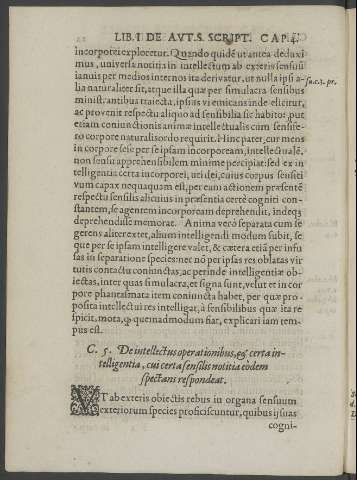 LIB. I DE AVT. S. SCRIPT. CAP. 4.
incorporei exploretur. Quando quidẽ ut antea deduxi
mus, universa notitia in intellectum ab exteris sensuū
ianuis per medios internos ita derivatur, ut nulla ipsi a-
lia naturaliter sit, atque illa quæ per simulacra sensibus
ministrantibus traiecta, ipsius vi emicans inde elicitur,
ac provenit respectu aliquo ad sensibilia sic habito, put
etiam coniunctionis animæ intellectualis cum sensife-
ro corpore naturalis ordo requirit. Hinc pater, cur mens
in corpore sese per se ipsam incorpoream, intellectualẽ,
non sensu apprehensibilem minime percipiat: sed ex in
telligentia certa incorporei, uti dei, cuius corpus sensiti
vum capax nequaquam est, per eam actionem præsentẽ
respectu sensilis alicuius in præsentia certè cogniti con-
stantem, se agentem incorpoream deprehendit, indeq;
deprehendisse memorat. Anima verò separata cum se
gerens aliter extet, alium intelligendi modum subit, se
que per se ipsam intelligere valet, & cætera etiã per infu
sas in separatione species: nec nõ per ipsas res oblatas vir
tutis contactu coniunctas, ac perinde intelligentiæ ob-
iectas, inter quas simulacra, et signa sunt, velut et in cor
pore phantasmata item coniuncta habet, per quæ pro-
posita intellectui res intelligat, à sensibilibus quæ ita re
spicit, mota, q̃ quemadmodum fiat, explicari iam tem-
pus est.
su. c. 2. pr.
C. 5. De intellectus operationibus, & certa in-
telligentia, cui certa sensilis notitia eodem
spectans respondeat.
VT ab exteris obiectis rebus in organa sensuum
exteriorum species proficiscuntur, quibus ij suas
cogni-